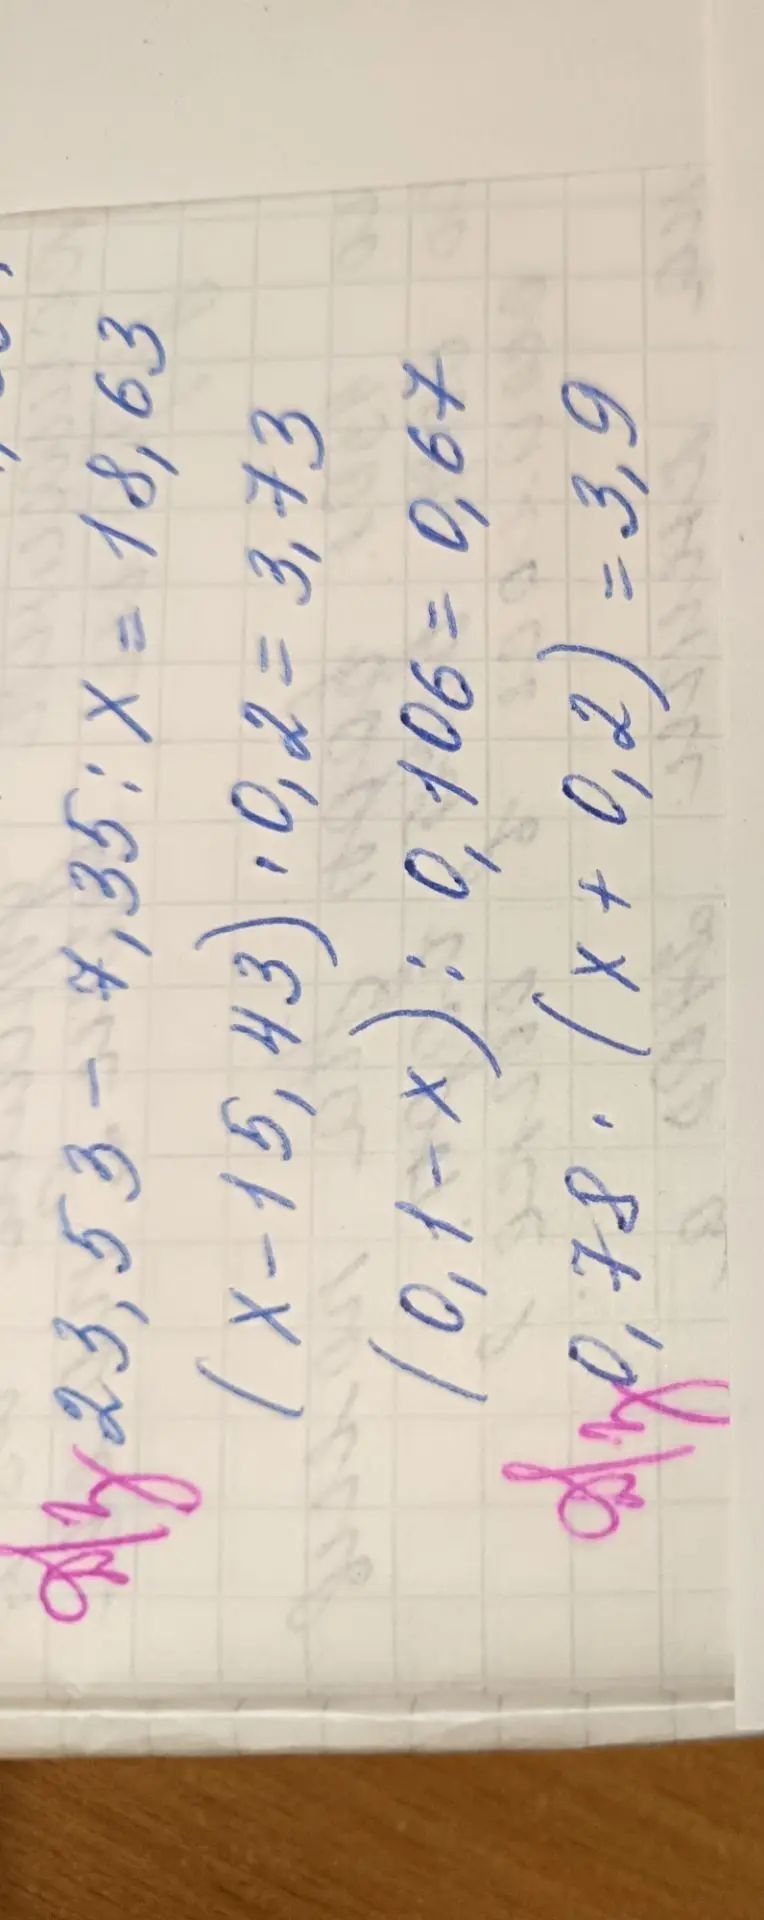 д/з 23,53 - 7,35 : x = 18,63
(x - 15,43) · 0,2 = 3,73
(0,1 - x) : 0,106 = 0,67
д/з 0,78 · (x + 0,2) = 3,9